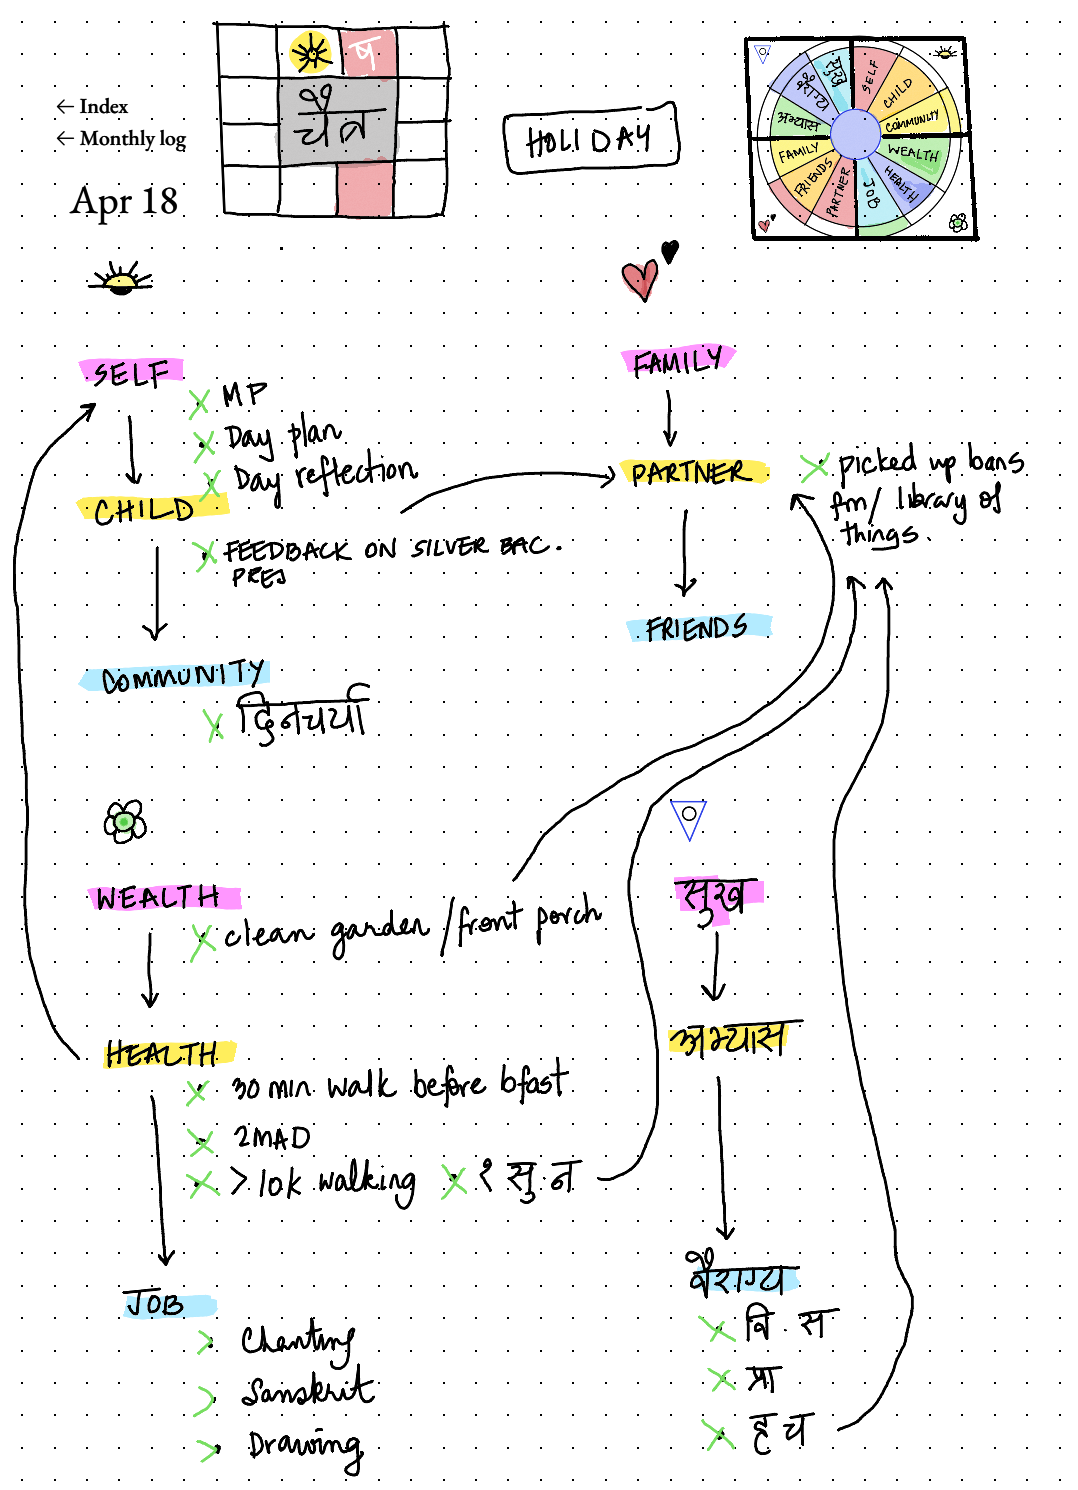 ← Index
← Monthly log
Apr 18
ष
चैत्र
HOLIDAY
सुख
SELF
CHILD
COMMUNITY
WEALTH
HEALTH
JOB
PARTNER
FRIENDS
FAMILY
अभ्यास
वैराग्य
SELF
MP
Day plan
Day reflection
CHILD
FEEDBACK ON SILVER BAC.
PRES
COMMUNITY
दिनचर्या
FAMILY
PARTNER
picked up bans
fm/ library of
things.
FRIENDS
WEALTH
clean garden /front porch
HEALTH
30 min walk before bfast
2MAD
>10k walking
१ सु न
JOB
Chanting
Sanskrit
Drawing
सुख
अभ्यास
वैराग्य
वि. स
प्रा
ह च